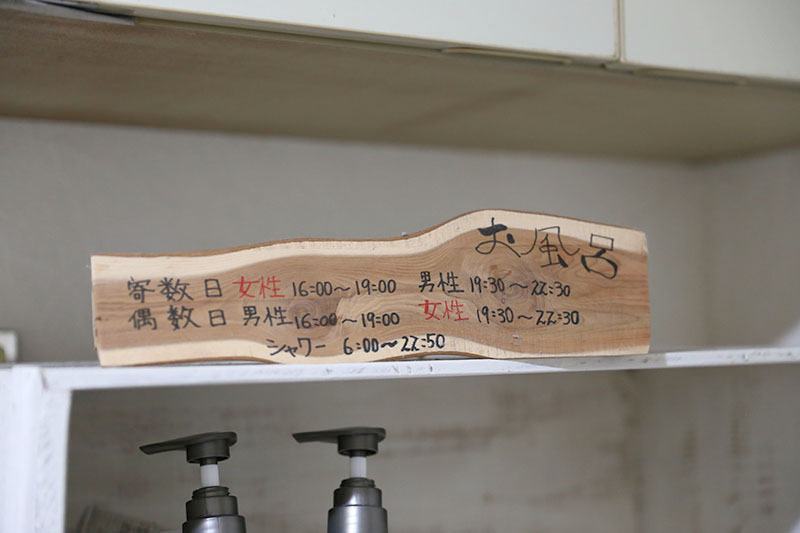 お風呂
寄数日 女性 16:00～19:00 男性 19:30～22:30
偶数日 男性 16:00～19:00 女性 19:30～22:30
シャワー 6:00～22:50